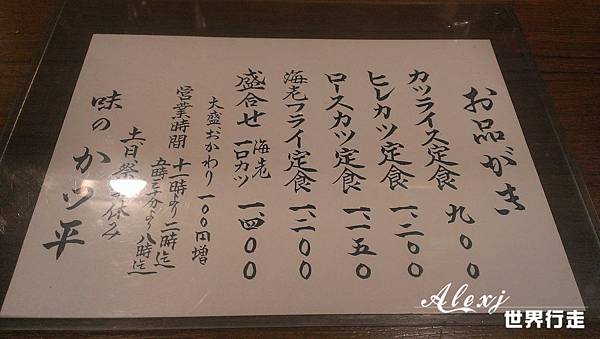 お品がき
カツライス定食 九〇〇
ヒレカツ定食 一、二〇〇
ロースカツ定食 一、一五〇
海老フライ定食 一、二〇〇
盛合せ 海老 一口カツ 一、四〇〇
大盛おかわり 一〇〇円増
営業時間 十一時より二時迄
五時三十分より八時迄
土日祭お休み
味のかつ平
Alexj
世界行走